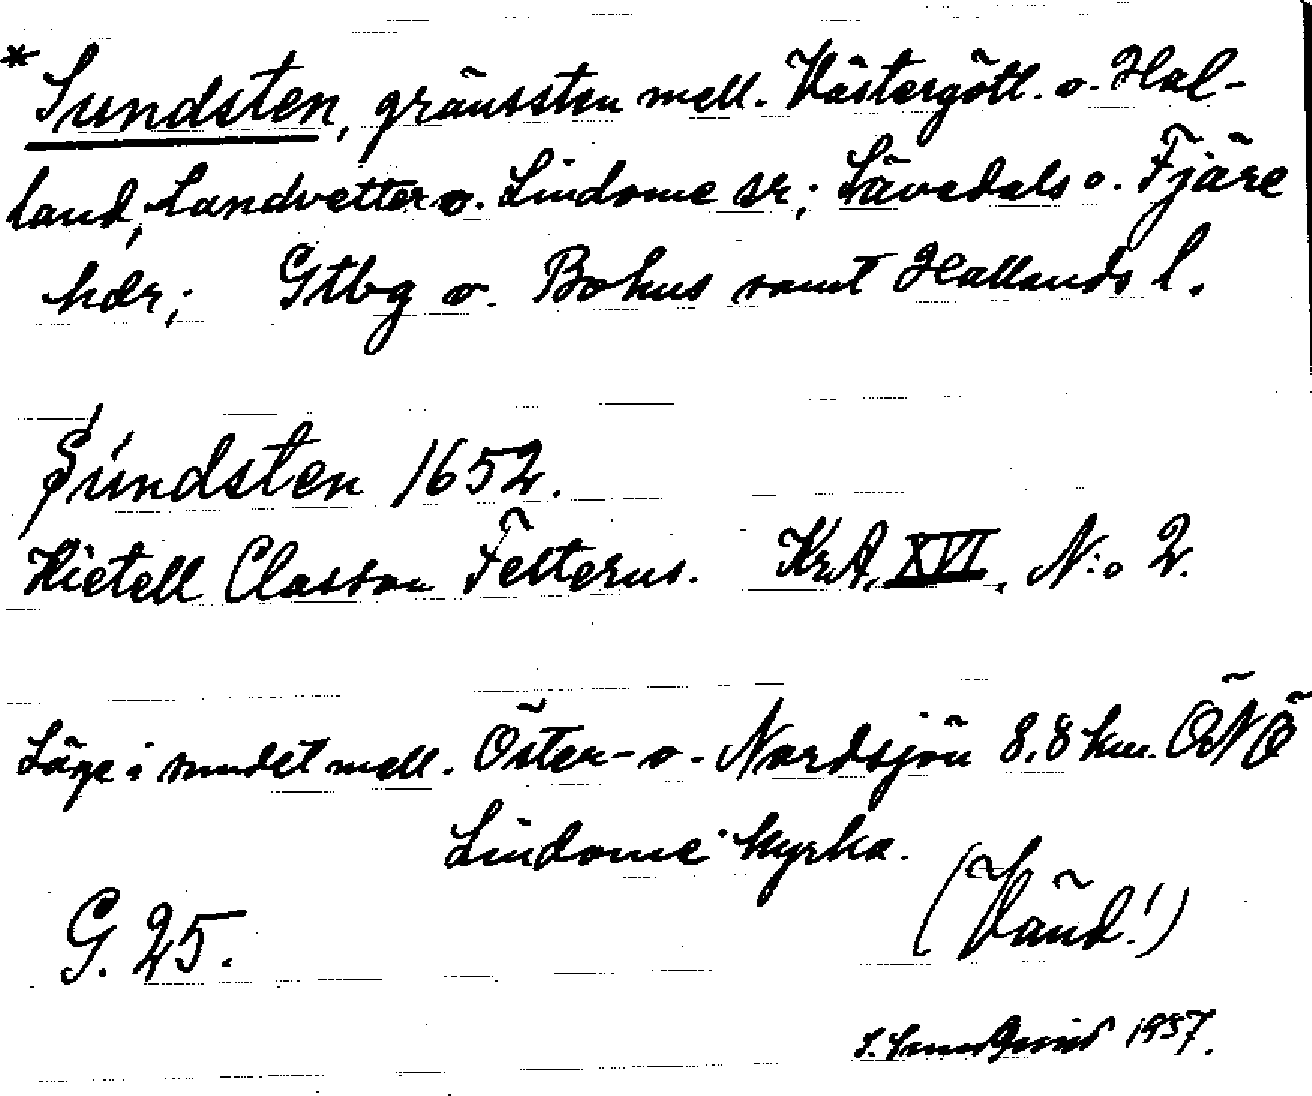 * Sundsten, gränssten mell. Västergötl. o. Hal-
land, Landvetter o. Lindome sr; Sävedals o. Fjäre
hdr; Gtbg o. Bohus samt Hallands l.
Sundsten 1652.
Kietell Classon Felterus. KrA, XVI, N:o 2.
Läge i sundet mell. Öster- o. Nordsjön 8,8 km. ÖNÖ
Lindome kyrka.
(Vänd!)
G. 25.
1937.